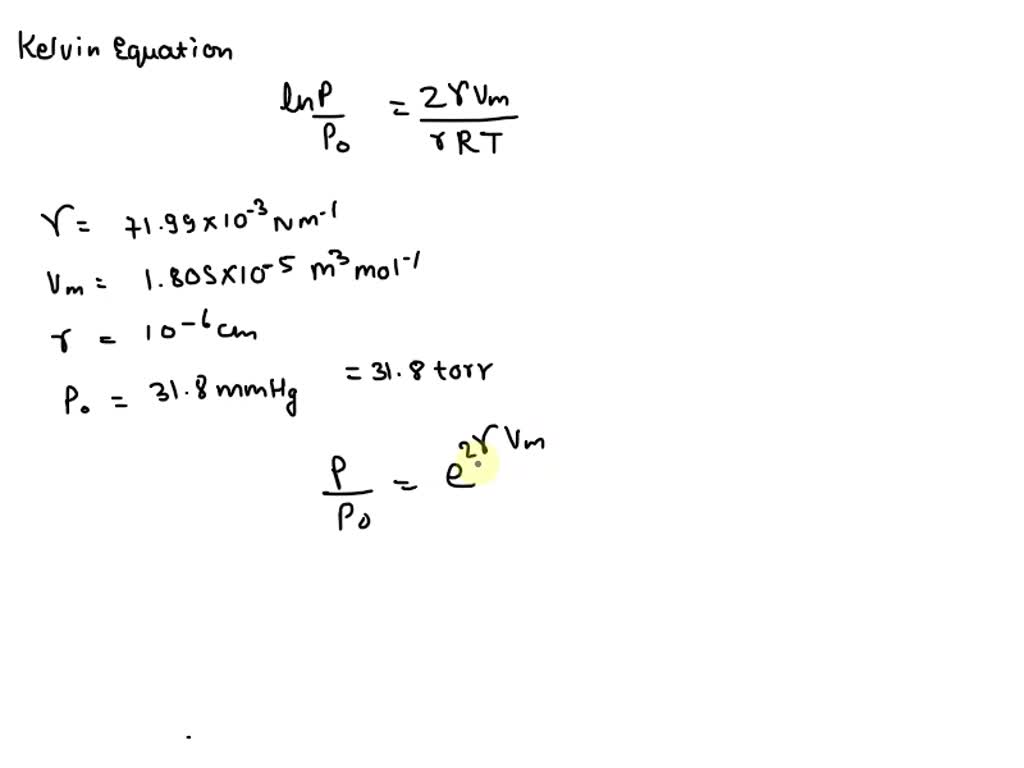 Kelvin Equation
ln P/P₀ = 2γVm/rRT
γ = 71.99×10⁻³ Nm⁻¹
Vm = 1.805×10⁻⁵ m³mol⁻¹
r = 10⁻⁶ cm
P₀ = 31.8 mmHg = 31.8 torr
P/P₀ = e^2γVm